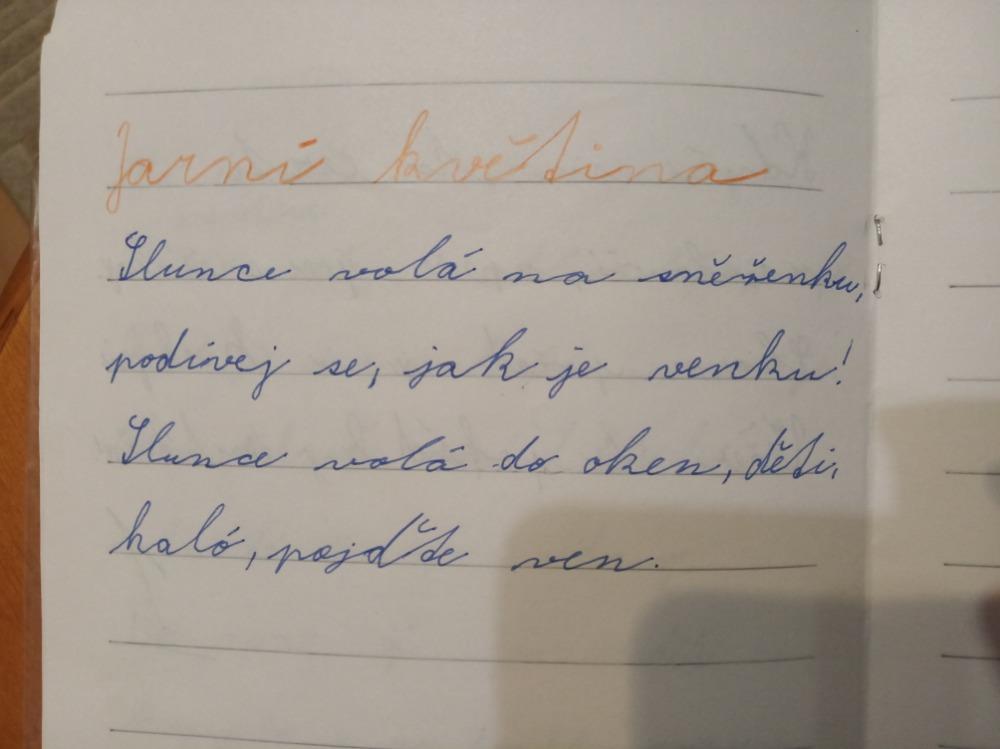 Jarní květina
Slunce volá na sněženku,
podívej se, jak je venku!
Slunce volá do oken, děti,
haló, pojďte ven.